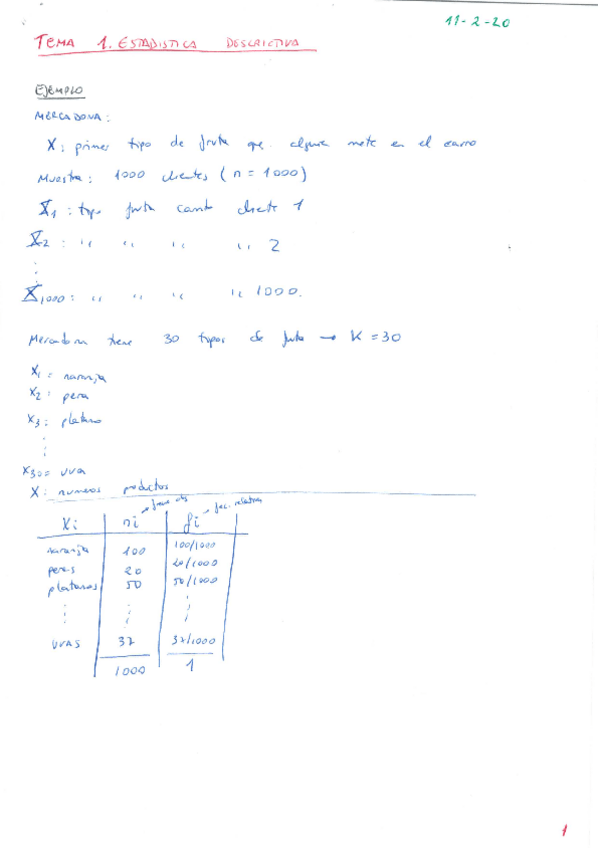 11-2-20
TEMA 1. ESTADISTICA DESCRIPTIVA
EJEMPLO
MERCADONA:
X: primer tipo de fruta que alguien mete en el carro
Muestra: 1000 clientes (n = 1000)
X1 : tipo fruta carrito cliente 1
X2 : " " " " 2
⋮
X1000: " " " " 1000.
Mercadona tiene 30 tipos de fruta → K = 30
x1 = naranja
x2 = pera
x3 = platano
⋮
x30 = uva
X: numeros productos
xi ni → frec. abs fi → frec. relativa
naranja 100 100/1000
peras 20 20/1000
platanos 50 50/1000
⋮ ⋮ ⋮
UVAS 37 37/1000
1000 1
1